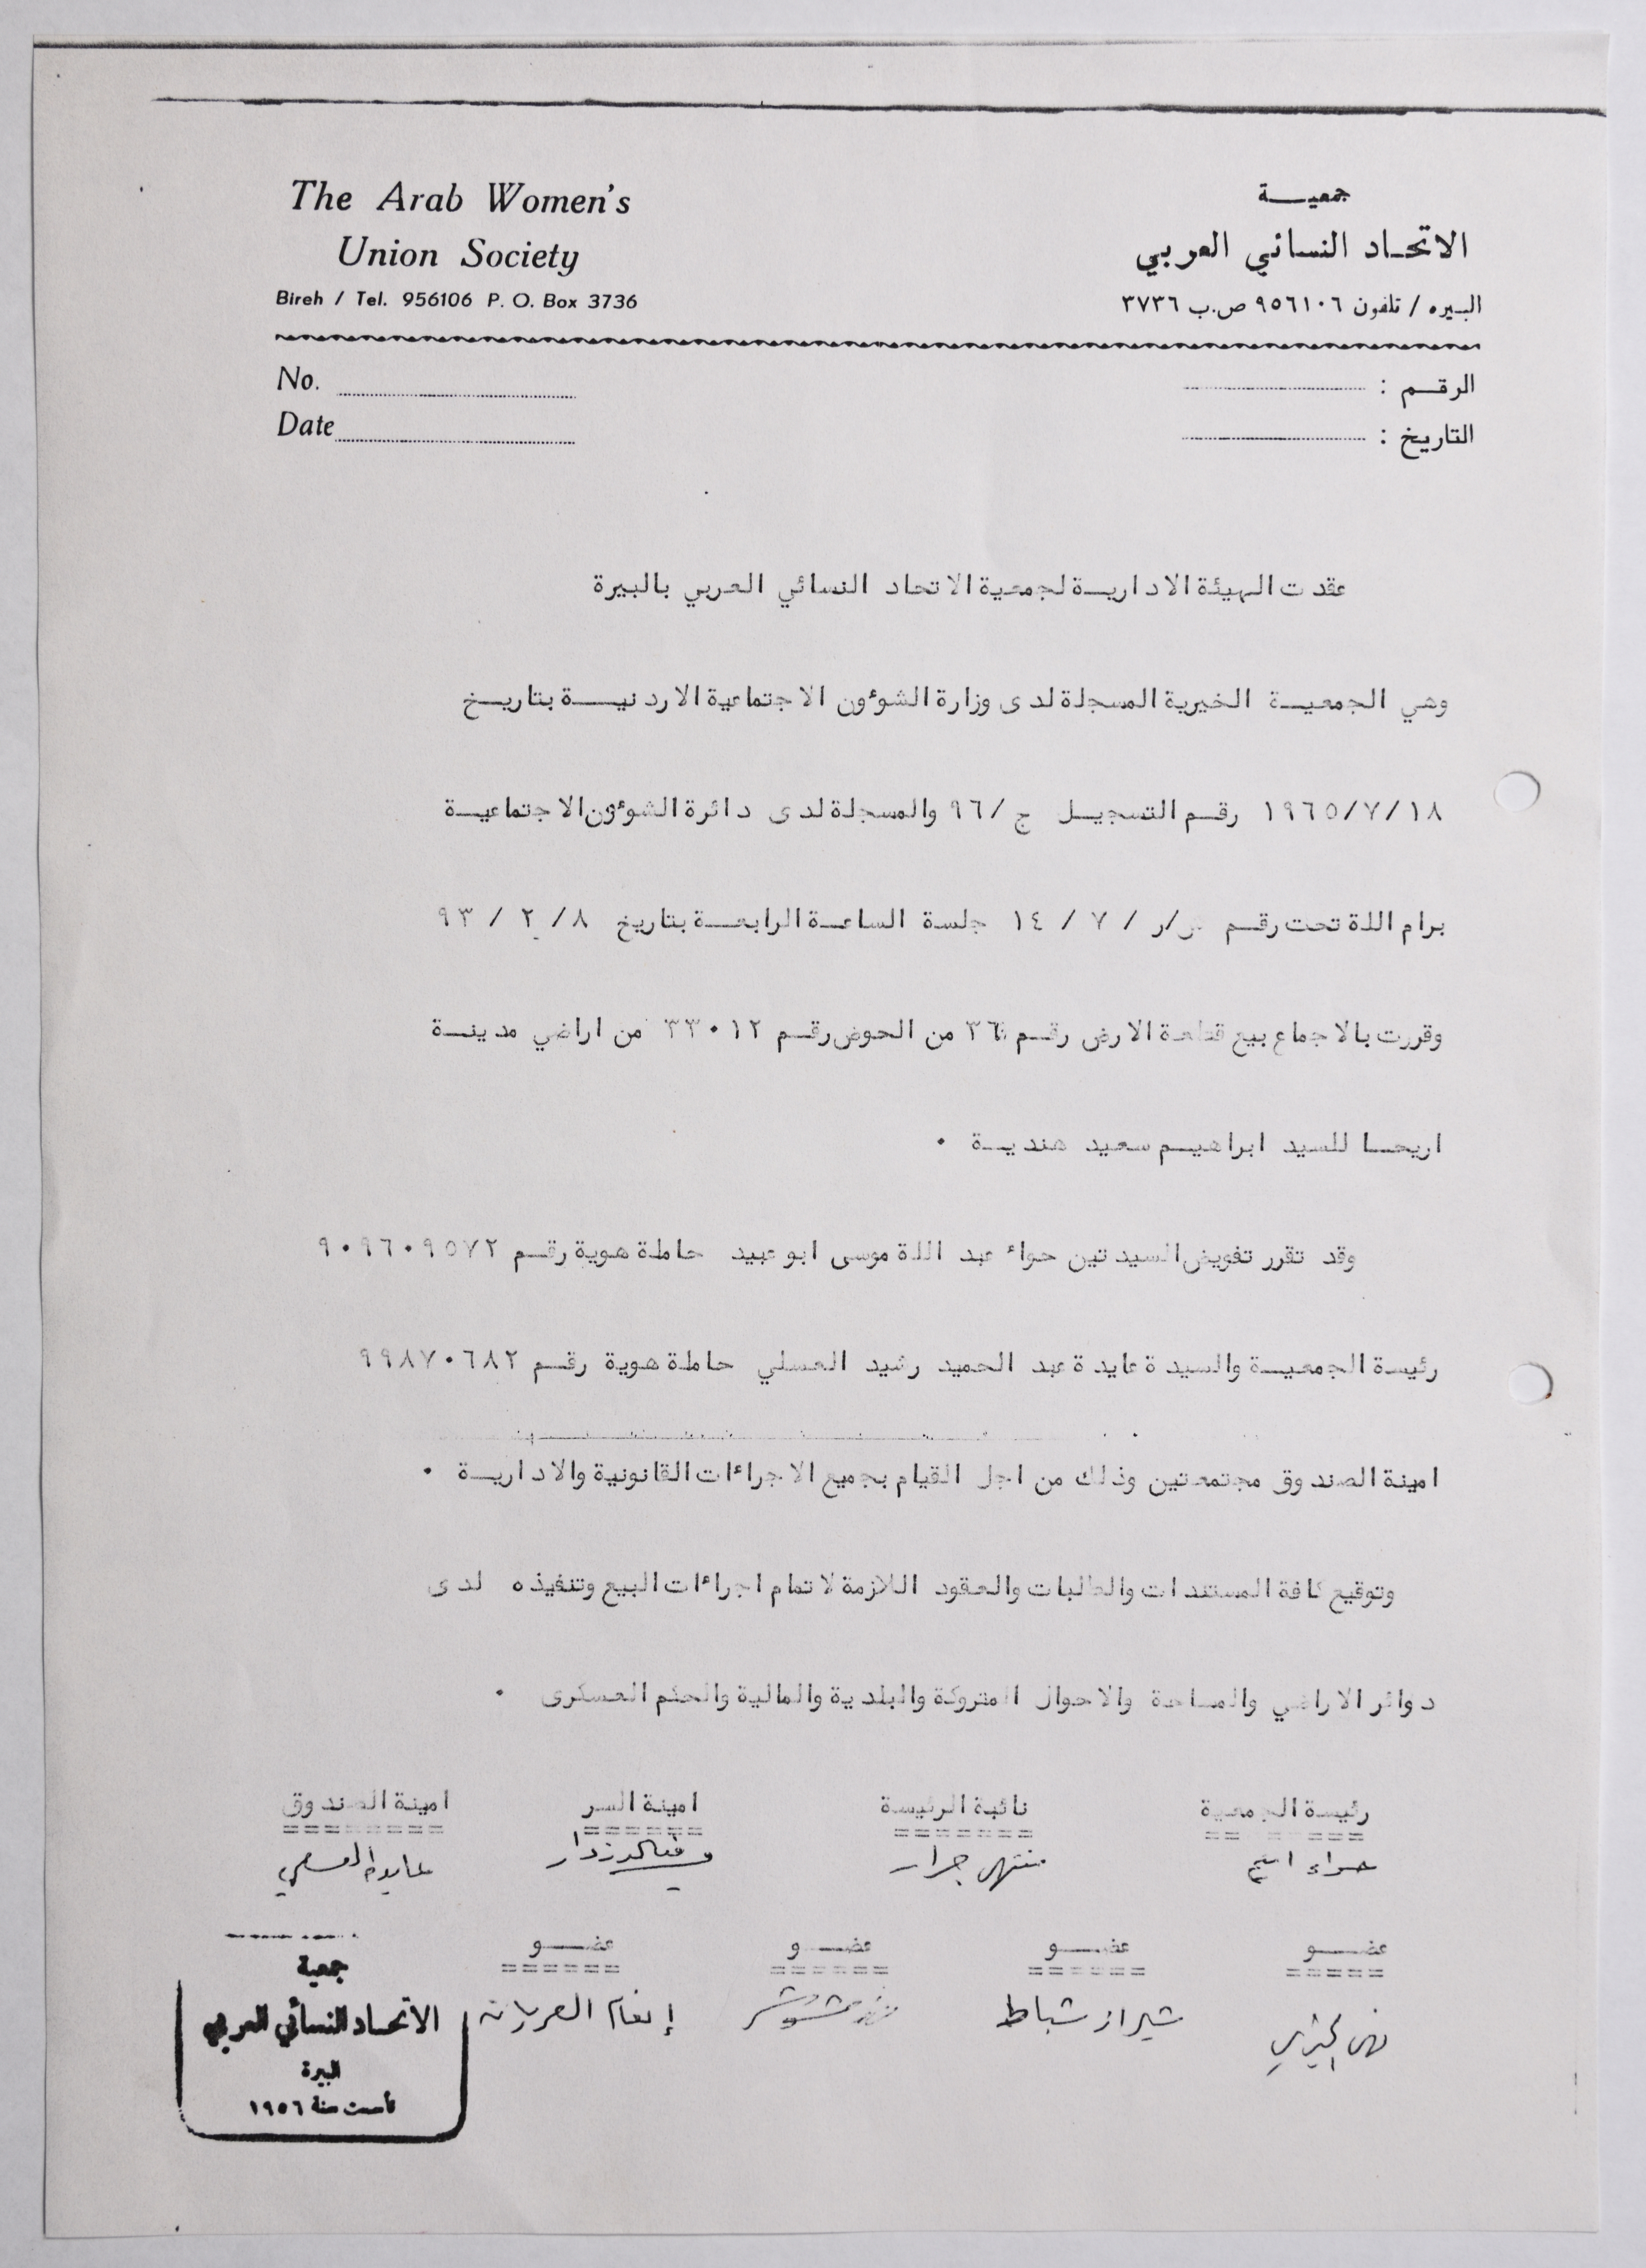 The Arab Women's
Union Society
Bireh / Tel. 956106 P. O. Box 3736
جمعيــة
الاتحـاد النسائي العربي
البيره / تلفون ٩٥٦١٠٦ ص.ب ٣٧٣٦
No.
الرقـم :
Date
التاريخ :
عقدت الهيئة الاداريـة لجمعية الاتحاد النسائي العربي بالبيرة
وهي الجمعيـة الخيرية المسجلة لدى وزارة الشوءون الاجتماعية الاردنيــة بتاريـخ
١٩٦٥/٧/١٨ رقـم التسجيـل ج/٩٦ والمسجلة لدى دائرة الشوءون الاجتماعيـة
برام اللة تحت رقـم /ر / ٧ / ١٤ جلسة الساعـة الرابعـة بتاريخ ٨/ ٢ / ٩٣
وقررت بالاجماع بيع قطعة الارض رقـم ٣٦ من الحوض رقـم ٣٣٠١٢ من اراضي مدينـة
اريحـا للسيد ابراهيـم سعيد هنديـة ٠
وقد تقرر تفويض السيدتين حواء عبد اللة موسى ابو عبيد حاملة هوية رقـم ٩٠٩٦٠٩٥٧٢
رئيسة الجمعيـة والسيدة عايدة عبد الحميد رشيد العسلي حاملة هوية رقـم ٩٩٨٧٠٦٨٢
امينة الصندوق مجتمعتين وذلك من اجل القيام بجميع الاجراءات القانونية والاداريـة ٠
وتوقيع كافة المستندات والطلبات والعقود اللازمة لاتمام اجراءات البيع وتنفيذه لدى
دوائر الاراضي والمساحة والاحوال المتروكة والبلدية والمالية والحكم العسكرى ٠
رئيسة الجمعية نائبة الرئيسة امينة السر امينة الصندوق
حواء منتهى جرار عايدة العسلي
عضــو عضــو عضــو عضــو
نهى شيراز شباط إنعام
جمعية
الاتحـاد النسائي العربي
البيرة
تأسست سنة ١٩٥٦